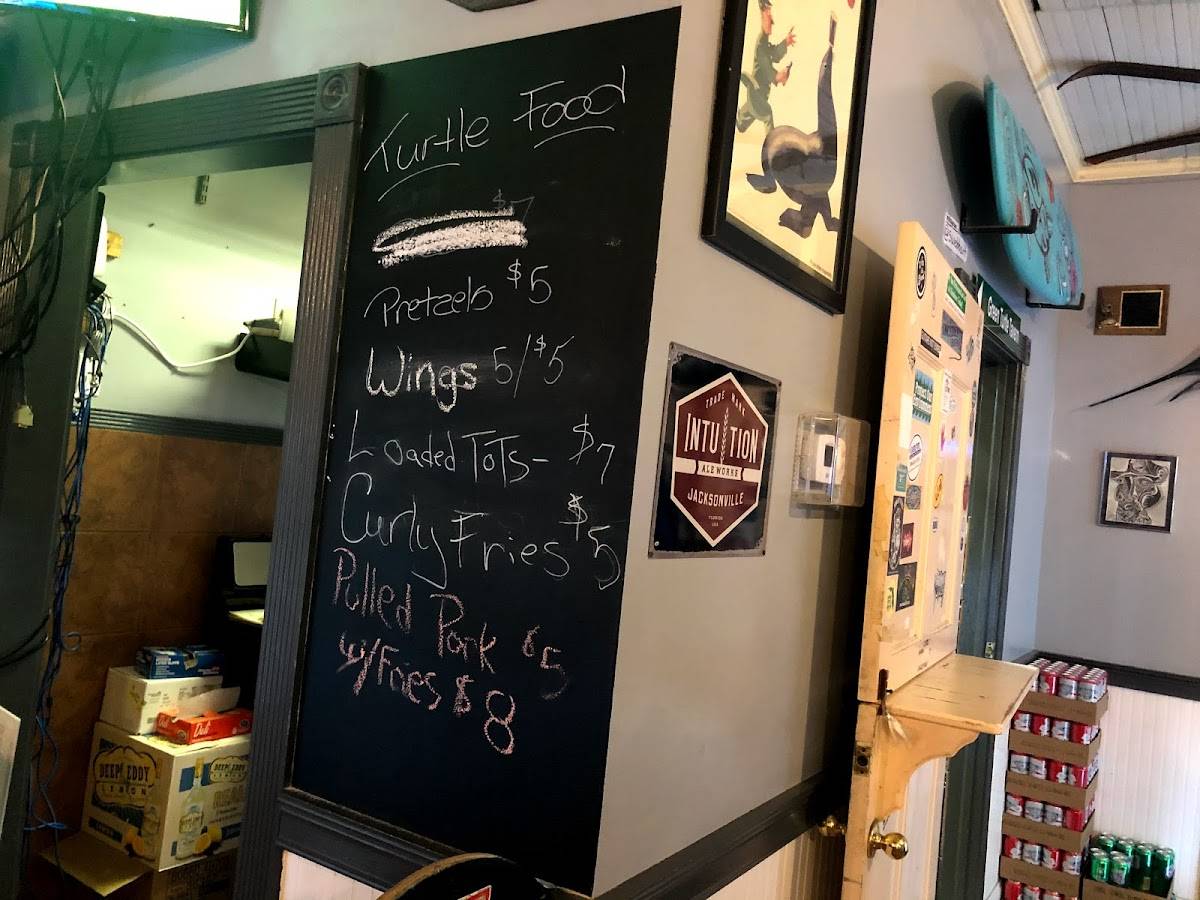 Turtle Food
$7
Pretzels $5
Wings 5/$5
Loaded ToTs- $7
Curly Fries $5
Pulled Pork $5
w/Fries $8
TRADE MARK
INTUITION
ALE WORKS
JACKSONVILLE
FLORIDA
USA
DEEP EDDY
LEMON
Deli